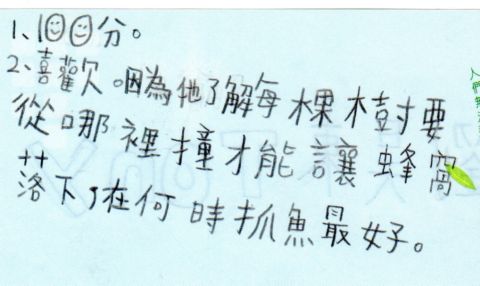 1、100分。
2、喜歡。因為他了解每棵樹要
從哪裡撞才能讓蜂窩
落下,在何時抓魚最好。